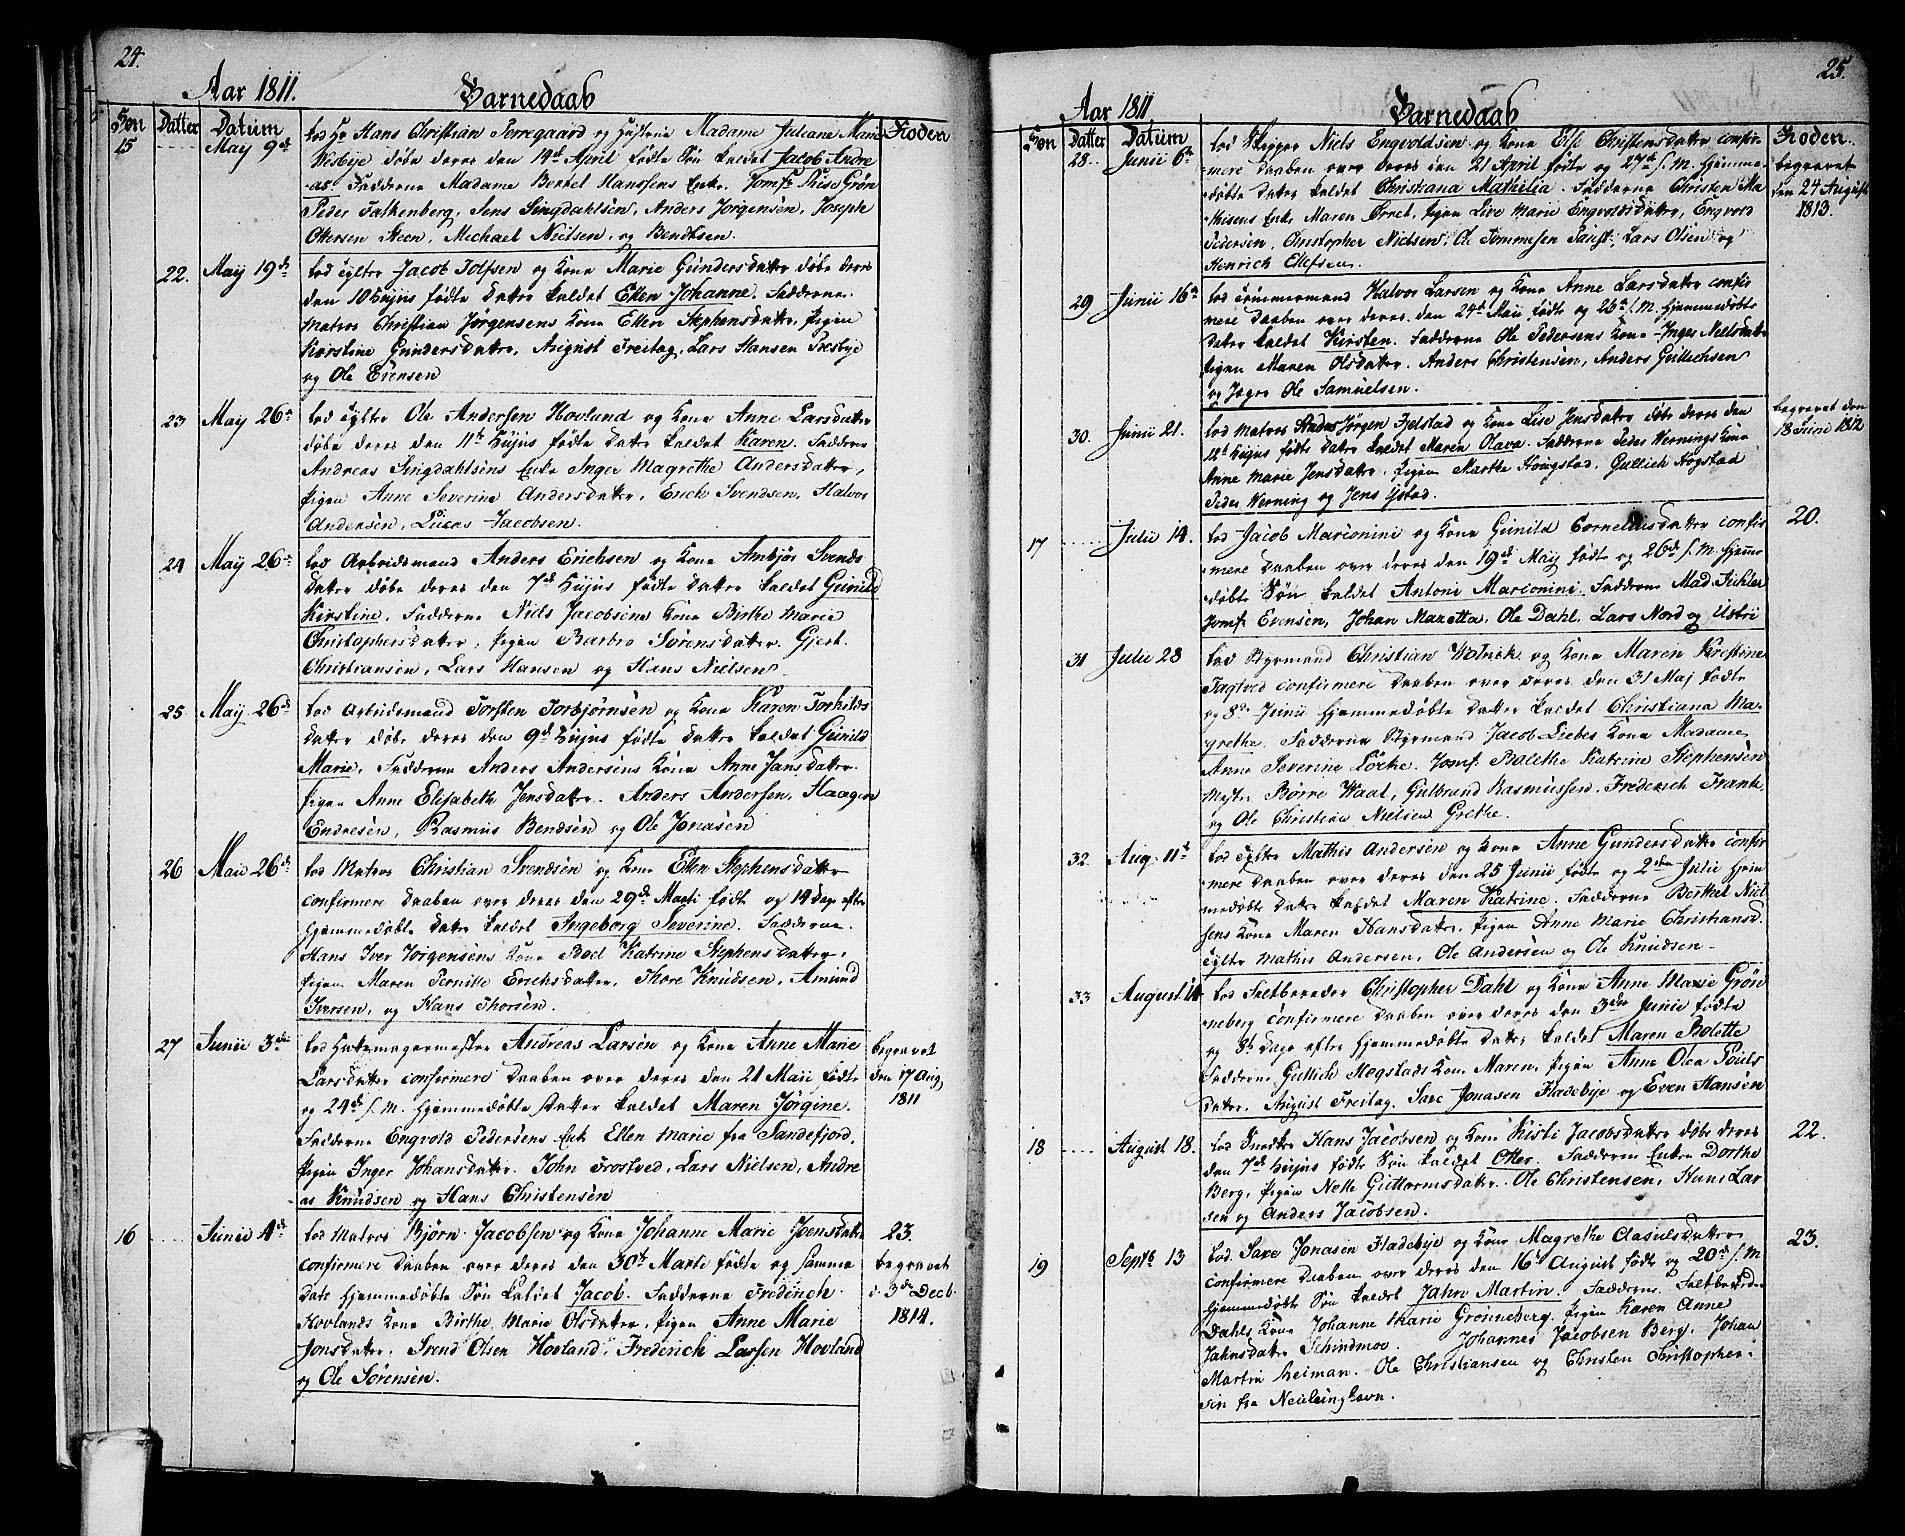 24.
Aar 1811. Barnedaab
Søn Datter Datum Noden
15 May 9de lod Hr Hans Christian Terregaard og Hustrue Madame Juliane Marie
Wisbye døbe deres den 14de April fødte Søn kaldet Jacob Andre
-as. Fadderne Madame Bertel Hanssens Enke, Jomf. Grøn
Peder Falkenberg, Jens Lingdahlsen, Anders Jørgensen, Joseph
Ottersen Steen, Michael Nielsen, og Bendtsen.
22. Maÿ 19de lod Jacob Tolfsen og Kone Marie Gundersdatter døbe deres
den 10 Hujus fødte Datter kaldet Ellen Johanne. Fadderne
Matros Christian Jørgensens Kone Ellen Stephensdatter, Pigen
Kirstine Gundersdatter, August Freitag, Lars Hansen
og Ole Evensen
23 May 26de lod Ole Andersen Hovland og Kone Anne Larsdatter
døbe deres den 11te Hujus fødte Datter kaldet Karen. Fadderne
Andreas Lingdahlsens Enke Inger Magrethe Andersdatter,
Pigen Anne Severine Andersdatter, Erich Svendsen, Halvor
Andersen, Lucas Jacobsen.
24 May 26de lod Arbeidsmand Anders Erichsen og Kone Anbjør Svends
datter døbe deres den 7de Hujus fødte Datter kaldet Gunild
Kirstine, Fadderne Niels Jacobsens Kone Birthe Marie
Christophersdatter, Pigen Barbro Sørensdatter, Gjert
Christiansen, Lars Hansen og Hans Nielsen
25 May 26de lod Arbeidsmand Torsten Torbjørnsen og Kone Karen Torkilds
datter døbe deres den 9de Hujus fødte Datter kaldet Gunild
Marie, Fadderne Anders Andersens Kone Anne Jansdatter.
Pigen Anne Elisabeth Jensdatter. Anders Andersen, Haagen
Endresen, Rasmus Bendsen og Ole Jonasen
26 Maii 26de lod Matros Christian Svendsen og Kone Ellen Stephensdatter
confirmere Daaben over deres den 29de Marti født og 14 Dage efter
hjemmedøbte Datter kaldet Ingeborg Severine. Fadderne
Hans Iver Jørgensens Kone Boel Katrine Stephensdatter,
Pigen Maren Pernille Erichsdatter, Thore Knudsen, Amund
Iversen, og Hans Thorsen.
27 Junii 3die lod Andreas Larsen og Kone Anne Marie
Larsdatter confirmere Daaben over deres den 21 Maii fødte
og 24de s. M. hjemmedøbte Datter kaldet Maren Jørgine.
Fadderne Engvold Pedersens Enke Ellen Marie fra Sandefjord,
Pigen Inger Johansdatter. John Trostved, Lars Nielsen, Andre
as Knudsen og Hans Christensen
begravet
den 17 Aug
1811
16 Junii 4de lod Matros Bjørn Jacobsen og Kone Johanne Marie Jensdatter
confirmere Daaben over deres den 30te Marti fødte og samme
Date hjemmedøbte Søn kaldet Jacob. Fadderne Fredrich
Hovlands Kone Birthe Marie Olsdatter, Pigen Anne Marie
Jonsdatter, Svend Olsen Hovland, Frederich Larsen Hovland
og Ole Sørensen.
23.
begravet
d. 3de Decb.
1814.
25.
Aar 1811 Barnedaab
Søn Datter Datum Noden
28 Junii 6te lod Skipper Niels Engvoldsen og Kone Else Christensdatter confir
-mere Daaben over deres den 21 April fødte og 27de s. M. hjemme
-døbte Datter kaldet Christiana Mathilia. Fadderne Christen Ma
thisens Enke Maren Ørnet, Pigen Live Marie Engvoldsdatter, Engvold
Pedersen, Christopher Nielsen, Ole Tommesen Faust, Lars Olsen og
Henrich Ellefsen.
begravet
den 24 August
1813.
29 Junii 16de lod Tømmermand Halvor Larsen og Kone Anne Larsdatter confir
mere Daaben over deres den 24de Maii fødte og 25de s. M. hjemmedøbte
Datter kaldet Kirsten. Fadderne Ole Pedersens Kone Inger Nielsdatter
Pigen Maren Olsdatter. Anders Christensen, Anders Gullechsen
og Ole Samuelsen.
30. Junii 21. lod Matros Jørgen Fjelstad og Kone Lise Jensdatter døbe deres den
12te Hujus fødte Datter kaldet Maren Olava. Fadderne Peder Wernings Kone
Anne Marie Jensdatter, Pigen Marthe Hougstad, Gullich Hogstad
Peder Werning og Jens Ÿstad.
begravet den
18 Juni 1812
17 Julii 14. lod Jacob Marionini og Kone Gunild Corneliusdatter confir
-mere Daaben over deres den 19de May født og 26de s. M. hjemme
døbte Søn kaldet Antoni Marionini. Fadderne Mad. Sichler
Jomf. Evensen, Johan Mazetta, Ole Dahl, Lars Nord og Ustri
20.
31 Julii 28 lod Styrmand Christian Wolrick og Kone Maren Kirstine
Tagtved confirmere Daaben over deres den 31 Maj fødte
og 8de Junii hjemmedøbte Datter kaldet Christiana Ma-
grethe. Fadderne Styrmand Jacob Liebes Kone Madame
Anne Severine Løcke. Jomf. Bolethe Katrine Stephensen
Børre Waal, Gulbrand Rasmussen, Frederich Frank,
og Ole Christian Nielsen Grethe.
32. Aug. 11te lod Mathis Andersen og Kone Anne Gundersdatter confir
mere Daaben over deres den 25 Junii født og 2den Julii hjem
medøbte Datter kaldet Maren Katrine. Fadderne Berthel Niel
sens Kone Maren Hansdatter, Pigen Anne Marie Christiansd.
Mathis Andersen, Ole Andersen og Ole Knudsen
33 August 14 lod Saltbereder Christopher Dahl og Kone Anne Marie Grøn
neberg confirmere Daaben over deres den 3die Junii fødte
og 8te Dage efter hjemmedøbte Datter kaldet Maren Bolette
Fadderne Gullich Hogstads Kone Maren, Pigen Anne Olea Pouls
datter, August Freitag. Saxe Jonasen Hadebye og Even Hansen
18 August 18. lod Snedker Hans Jacobsen og Kone Kisti Jacobsdatter døbe deres
den 7de Hujus fødte Søn kaldet Otter. Fadderne Enken Dorthe
Berg, Pigen Nelle Guttormsdatter. Ole Christensen, Hans Lar
sen og Anders Jacobsen.
22.
19 Septb 13 lod Saxe Jonasen Hadebye og Kone Magrethe Clasiusdatter
confirmere Daaben over deres den 16de August født og 20de s. M
hjemmedøbte Søn kaldet Jahn Martin. Fadderne Saltbereder
Dahls Kone Johanne Marie Grønneberg. Pigen Karen Anne
Jahnsdatter Schindmoe. Johannes Jacobsen Berg. Johan
Martin Reiman. Ole Christiansen og Christen Christopher-
sen fra Neulunghavn.
23.